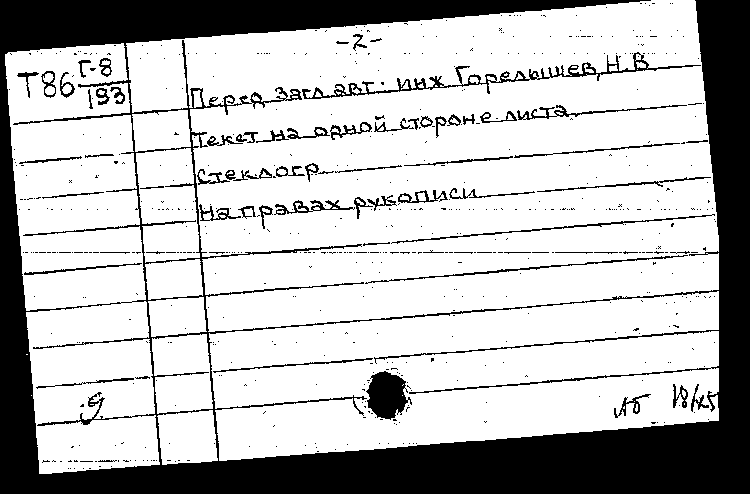 -2-
Т86 Г-8
193
Перед загл авт: инж Горелышев, Н.В
Текст на одной стороне листа.
стеклогр.
На правах рукописи
g